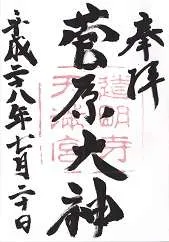 奉拝
道明寺
天満宮
菅原大神
平成二八年七月二十日